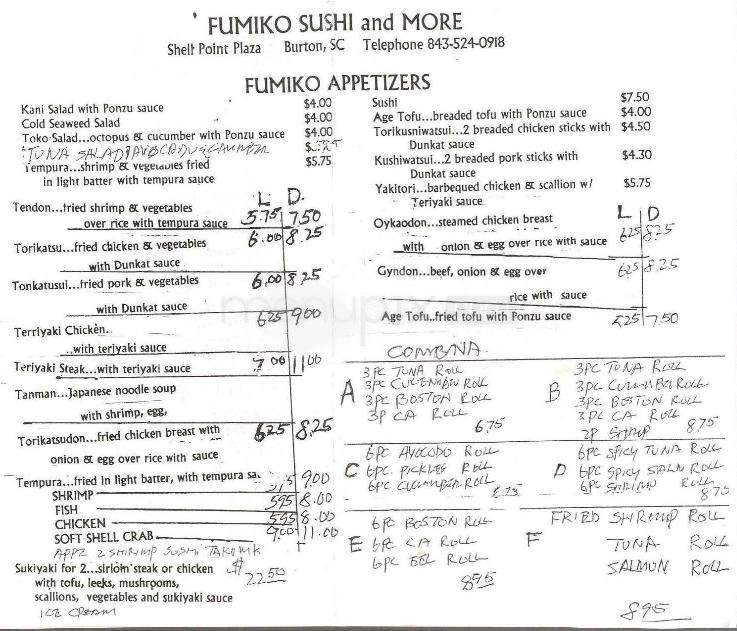 FUMIKO SUSHI and MORE
Shell Point Plaza Burton, SC Telephone 843-524-0918
FUMIKO APPETIZERS
Kani Salad with Ponzu sauce $4.00
Cold Seaweed Salad $4.00
Toko-Salad...octopus & cucumber with Ponzu sauce $4.00
TUNA SALAD
Tempura...shrimp & vegetables fried $5.75
in light batter with tempura sauce
L D.
Tendon...fried shrimp & vegetables
over rice with tempura sauce 5.75 7.50
Torikatsu...fried chicken & vegetables 6.00 8.25
with Dunkat sauce
Tonkatusui...fried pork & vegetables 6.00 8.25
with Dunkat sauce
625 900
Terriyaki Chicken..
..with teriyaki sauce
Teriyaki Steak...with teriyaki sauce 7.00 11.00
Tanman...Japanese noodle soup
with shrimp, egg,
Torikatsudon...fried chicken breast with 625 8.25
onion & egg over rice with sauce
Tempura...fried in light batter, with tempura sa. 9.00
SHRIMP 595 8.00
FISH
CHICKEN 595 8.00
SOFT SHELL CRAB 9.00 11.00
APPZ 2 SHRIMP SUSHI
Sukiyaki for 2...sirloin steak or chicken $ 22.50
with tofu, leeks, mushrooms,
scallions, vegetables and sukiyaki sauce
ICE CREAM
Sushi $7.50
Age Tofu...breaded tofu with Ponzu sauce $4.00
Torikusniwatsui...2 breaded chicken sticks with $4.50
Dunkat sauce
Kushiwatsui...2 breaded pork sticks with $4.30
Dunkat sauce
Yakitori...barbequed chicken & scallion w/ $5.75
Teriyaki sauce
L D
Oykaodon...steamed chicken breast
with onion & egg over rice with sauce 625 825
Gyndon...beef, onion & egg over 625 8.25
rice with sauce
Age Tofu..fried tofu with Ponzu sauce 525 7.50
COMBNA
A
3PC TUNA ROLL
3PC CUCUMBER ROLL
3PC BOSTON ROLL
3P CA ROLL
6.75
B
3PC TUNA ROLL
3PC CUCUMBER ROLL
3PC BOSTON ROLL
3PC CA ROLL
2P SHRIMP 8.75
C
6PC AVOCODO ROLL
6PC PICKLES ROLL
6PC CUCUMBER ROLL
8.75
D
6PC SPICY TUNA ROLL
6PC SPICY SALN ROLL
6PC SHRIMP ROLL
8.75
E
6PC BOSTON ROLL
6PC CA ROLL
6PC EEL ROLL
895
F
FRIED SHRIMP ROLL
TUNA ROLL
SALMON ROLL
895